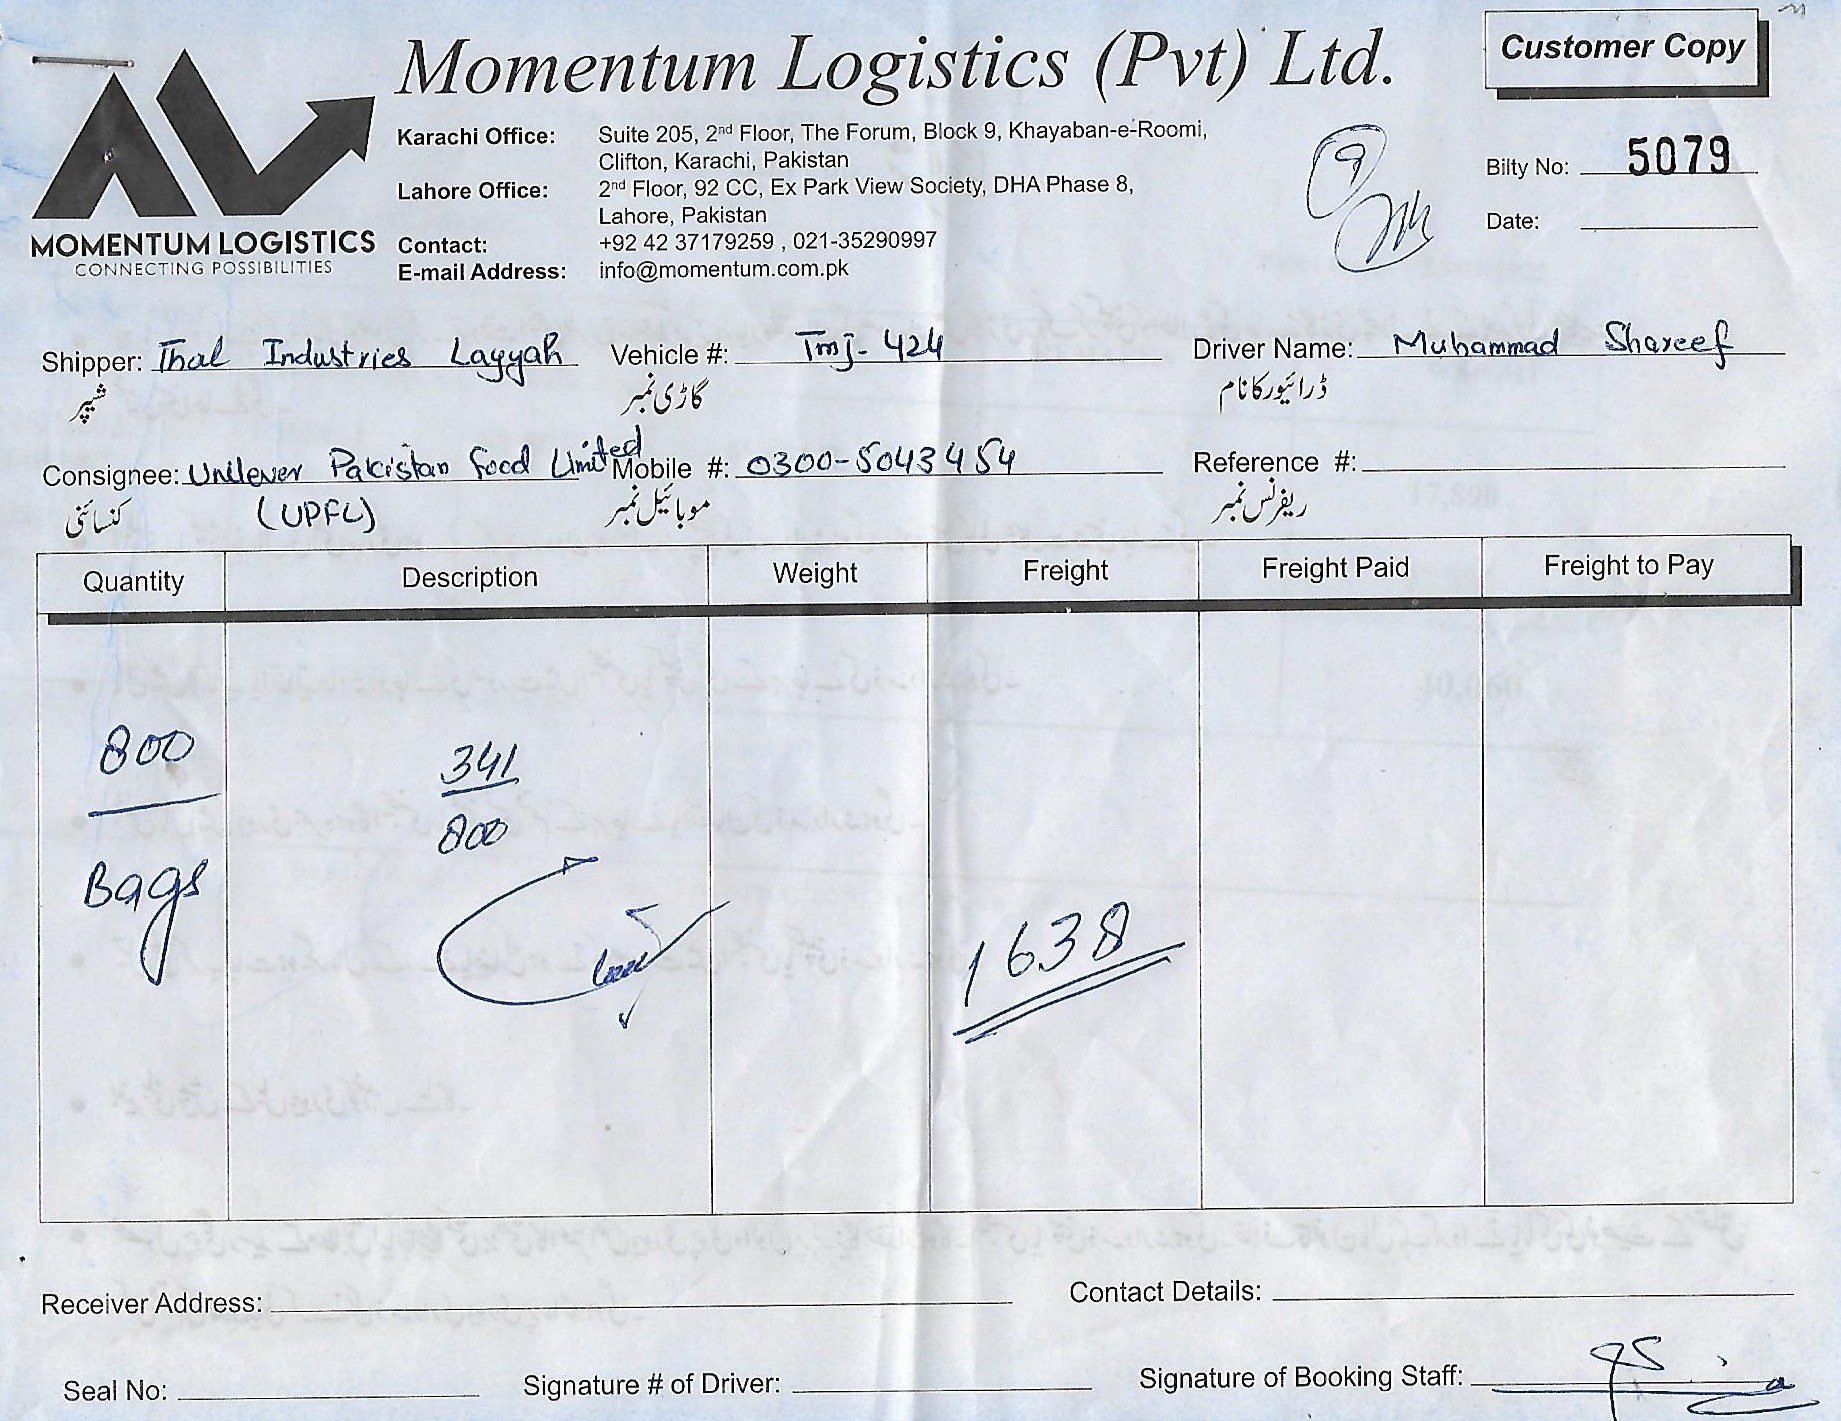 Momentum Logistics (Pvt) Ltd.
Customer Copy
MOMENTUM LOGISTICS
CONNECTING POSSIBILITIES
Karachi Office: Suite 205, 2nd Floor, The Forum, Block 9, Khayaban-e-Roomi,
Clifton, Karachi, Pakistan
Lahore Office: 2nd Floor, 92 CC, Ex Park View Society, DHA Phase 8,
Lahore, Pakistan
Contact: +92 42 37179259 , 021-35290997
E-mail Address: info@momentum.com.pk
9
Bilty No: 5079
Date:
Shipper: Thal Industries Layyah Vehicle #: Tmj-424 Driver Name: Muhammad Shareef
شیپر گاڑی نمبر ڈرائیور کا نام
Consignee: Unilever Pakistan Food Limited Mobile #: 0300-5043454 Reference #:
(UPFL)
کنسائنی موبائیل نمبر ریفرنس نمبر
Quantity Description Weight Freight Freight Paid Freight to Pay
800 341
Bags 800
1638
Receiver Address: Contact Details:
Seal No: Signature # of Driver: Signature of Booking Staff: